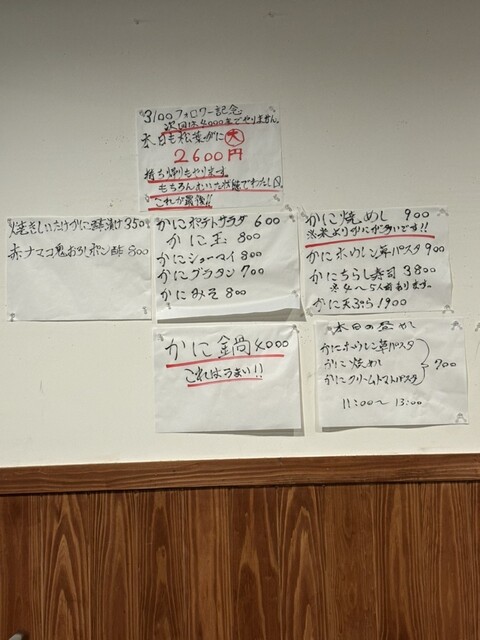 3100フォロワー記念
次回は4000までやりません
本日も松葉がに大
2600円
持ち帰りもやります。
これが最後!!
焼きしいたけかに酢漬け 350
赤ナマコ鬼おろしポン酢 800
かにポテトサラダ 600
かに玉 800
かにシューマイ 800
かにグラタン 700
かにみそ 800
かに焼めし 900
※米よりかにが多いです!!
かにホウレン草パスタ 900
かにちらし寿司 3800
※4〜5人前あります。
かに天ぷら 1900
かに鍋 4000
これはうまい!!
本日の昼めし
かにホウレン草パスタ
かに焼めし
かにクリームトマトパスタ
900
11:00〜13:00